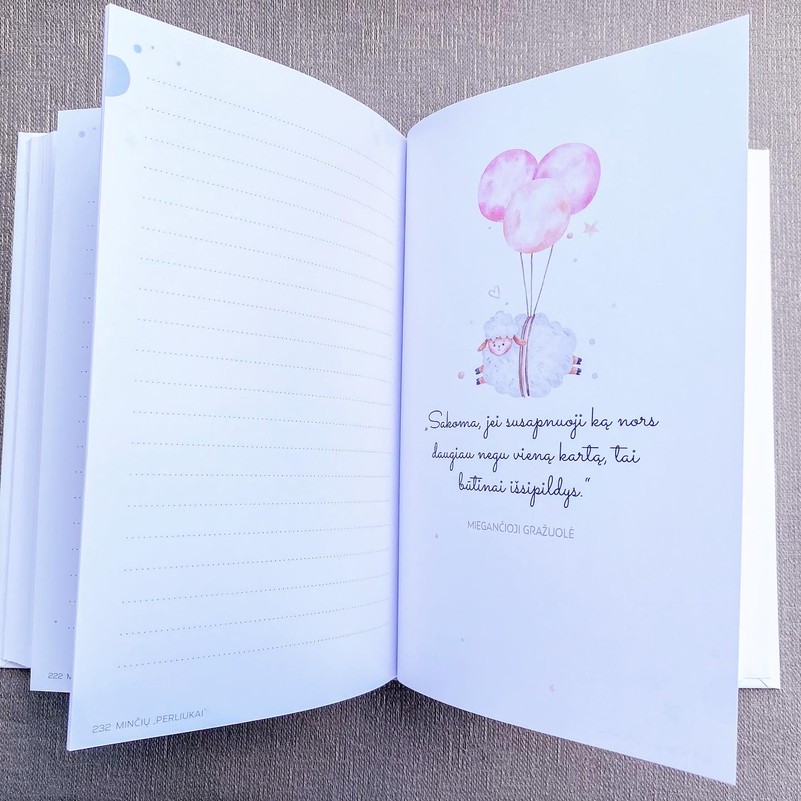 222 M
232 MINČIŲ „PERLIUKAI“
„Sakoma, jei susapnuoji ką nors
daugiau negu vieną kartą, tai
būtinai išsipildys.“
MIEGANČIOJI GRAŽUOLĖ